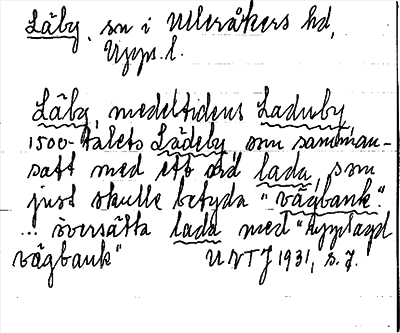 Läby, sn i Ulleråkers hd,
Upps. l.
Läby, medeltidens Laduby,
1500-talets Lädeby, som samman-
satt med ett ord lada, som
just skulle betyda "vägbank".
... översätta lada med "upplagd
vägbank" UNT J 1931, s. 7.